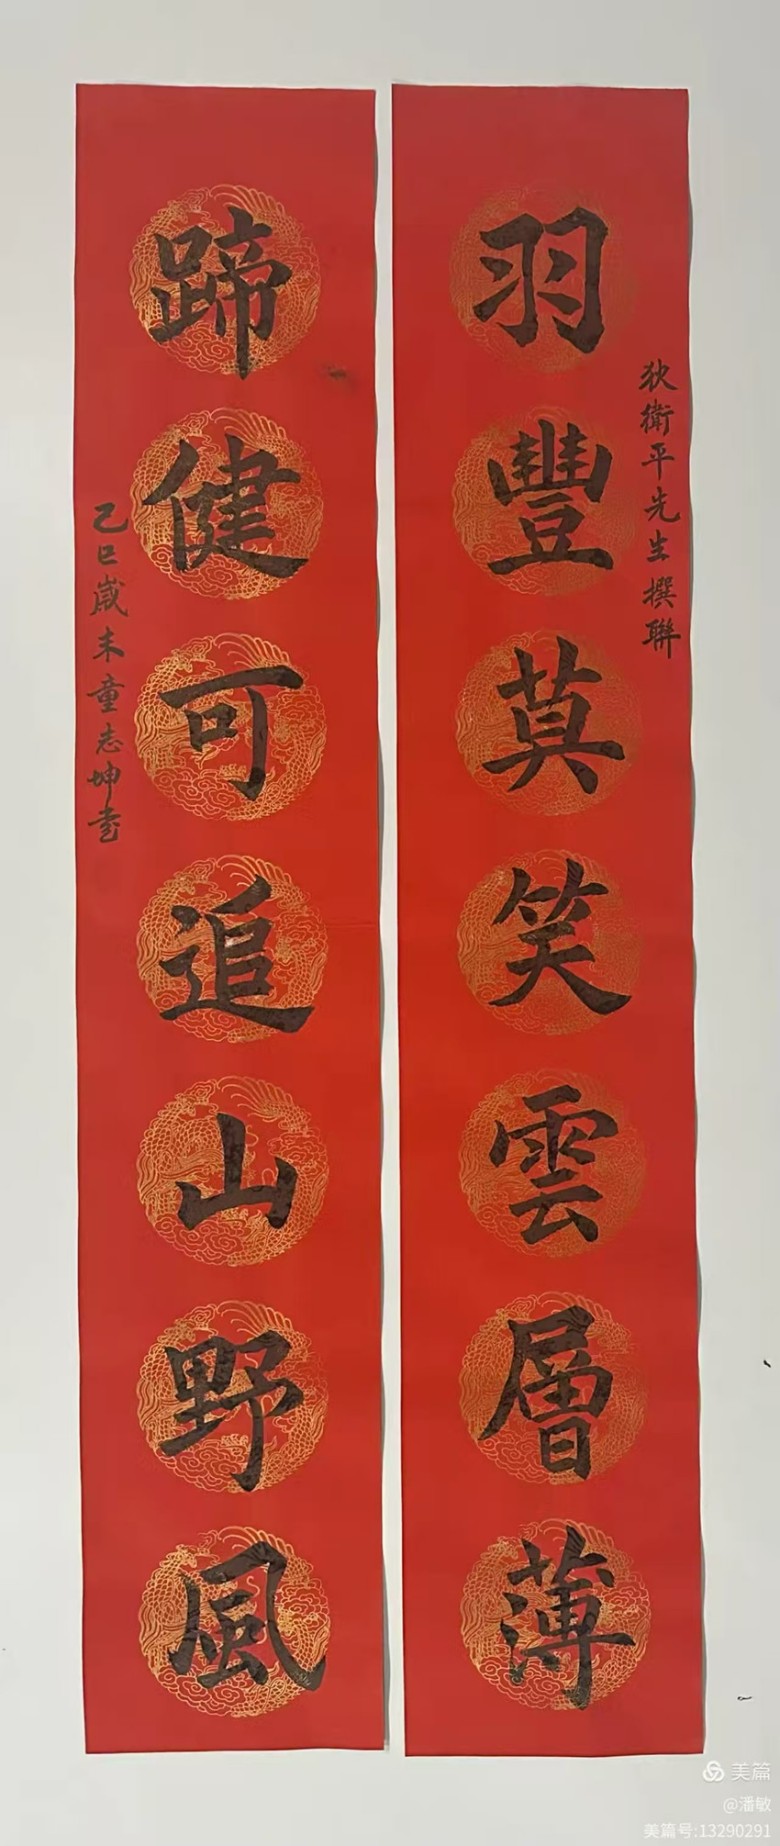 羽豐莫笑雲層薄
狄衛平先生撰聯
蹄健可追山野風
乙巳歲末童志坤書
美篇
@潘敏
美篇号:13290291